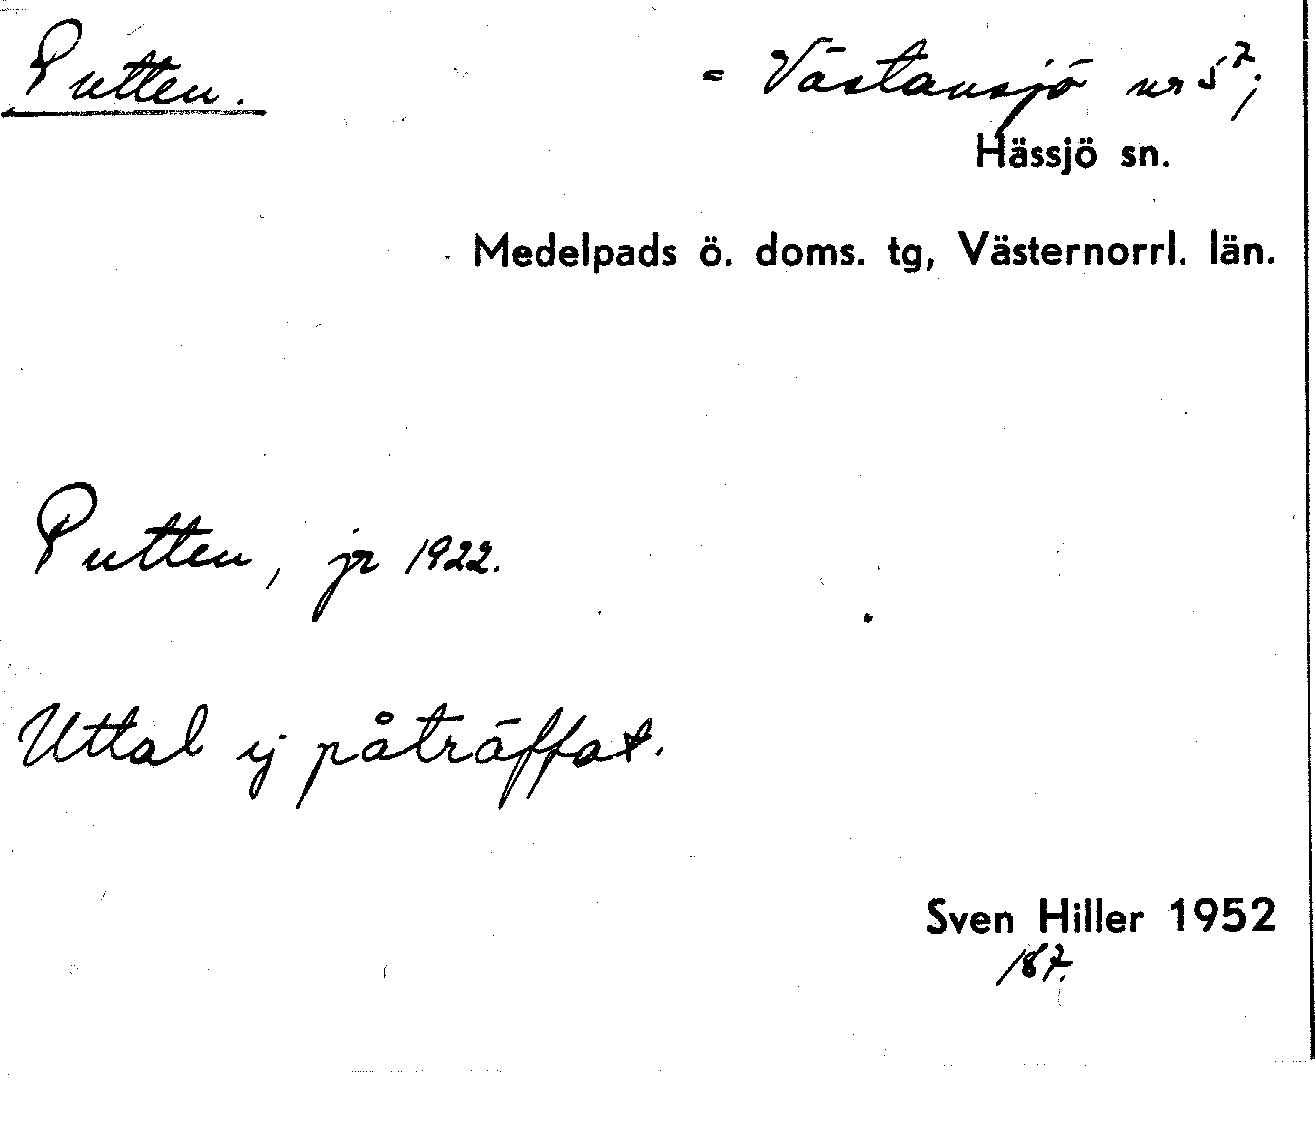 Putten. = Västansjö nr 5⁷;
Hässjö sn.
Medelpads ö. doms. tg, Västernorrl. län.
Putten, jr 1922.
Uttal ej påträffat.
Sven Hiller 1952
187.